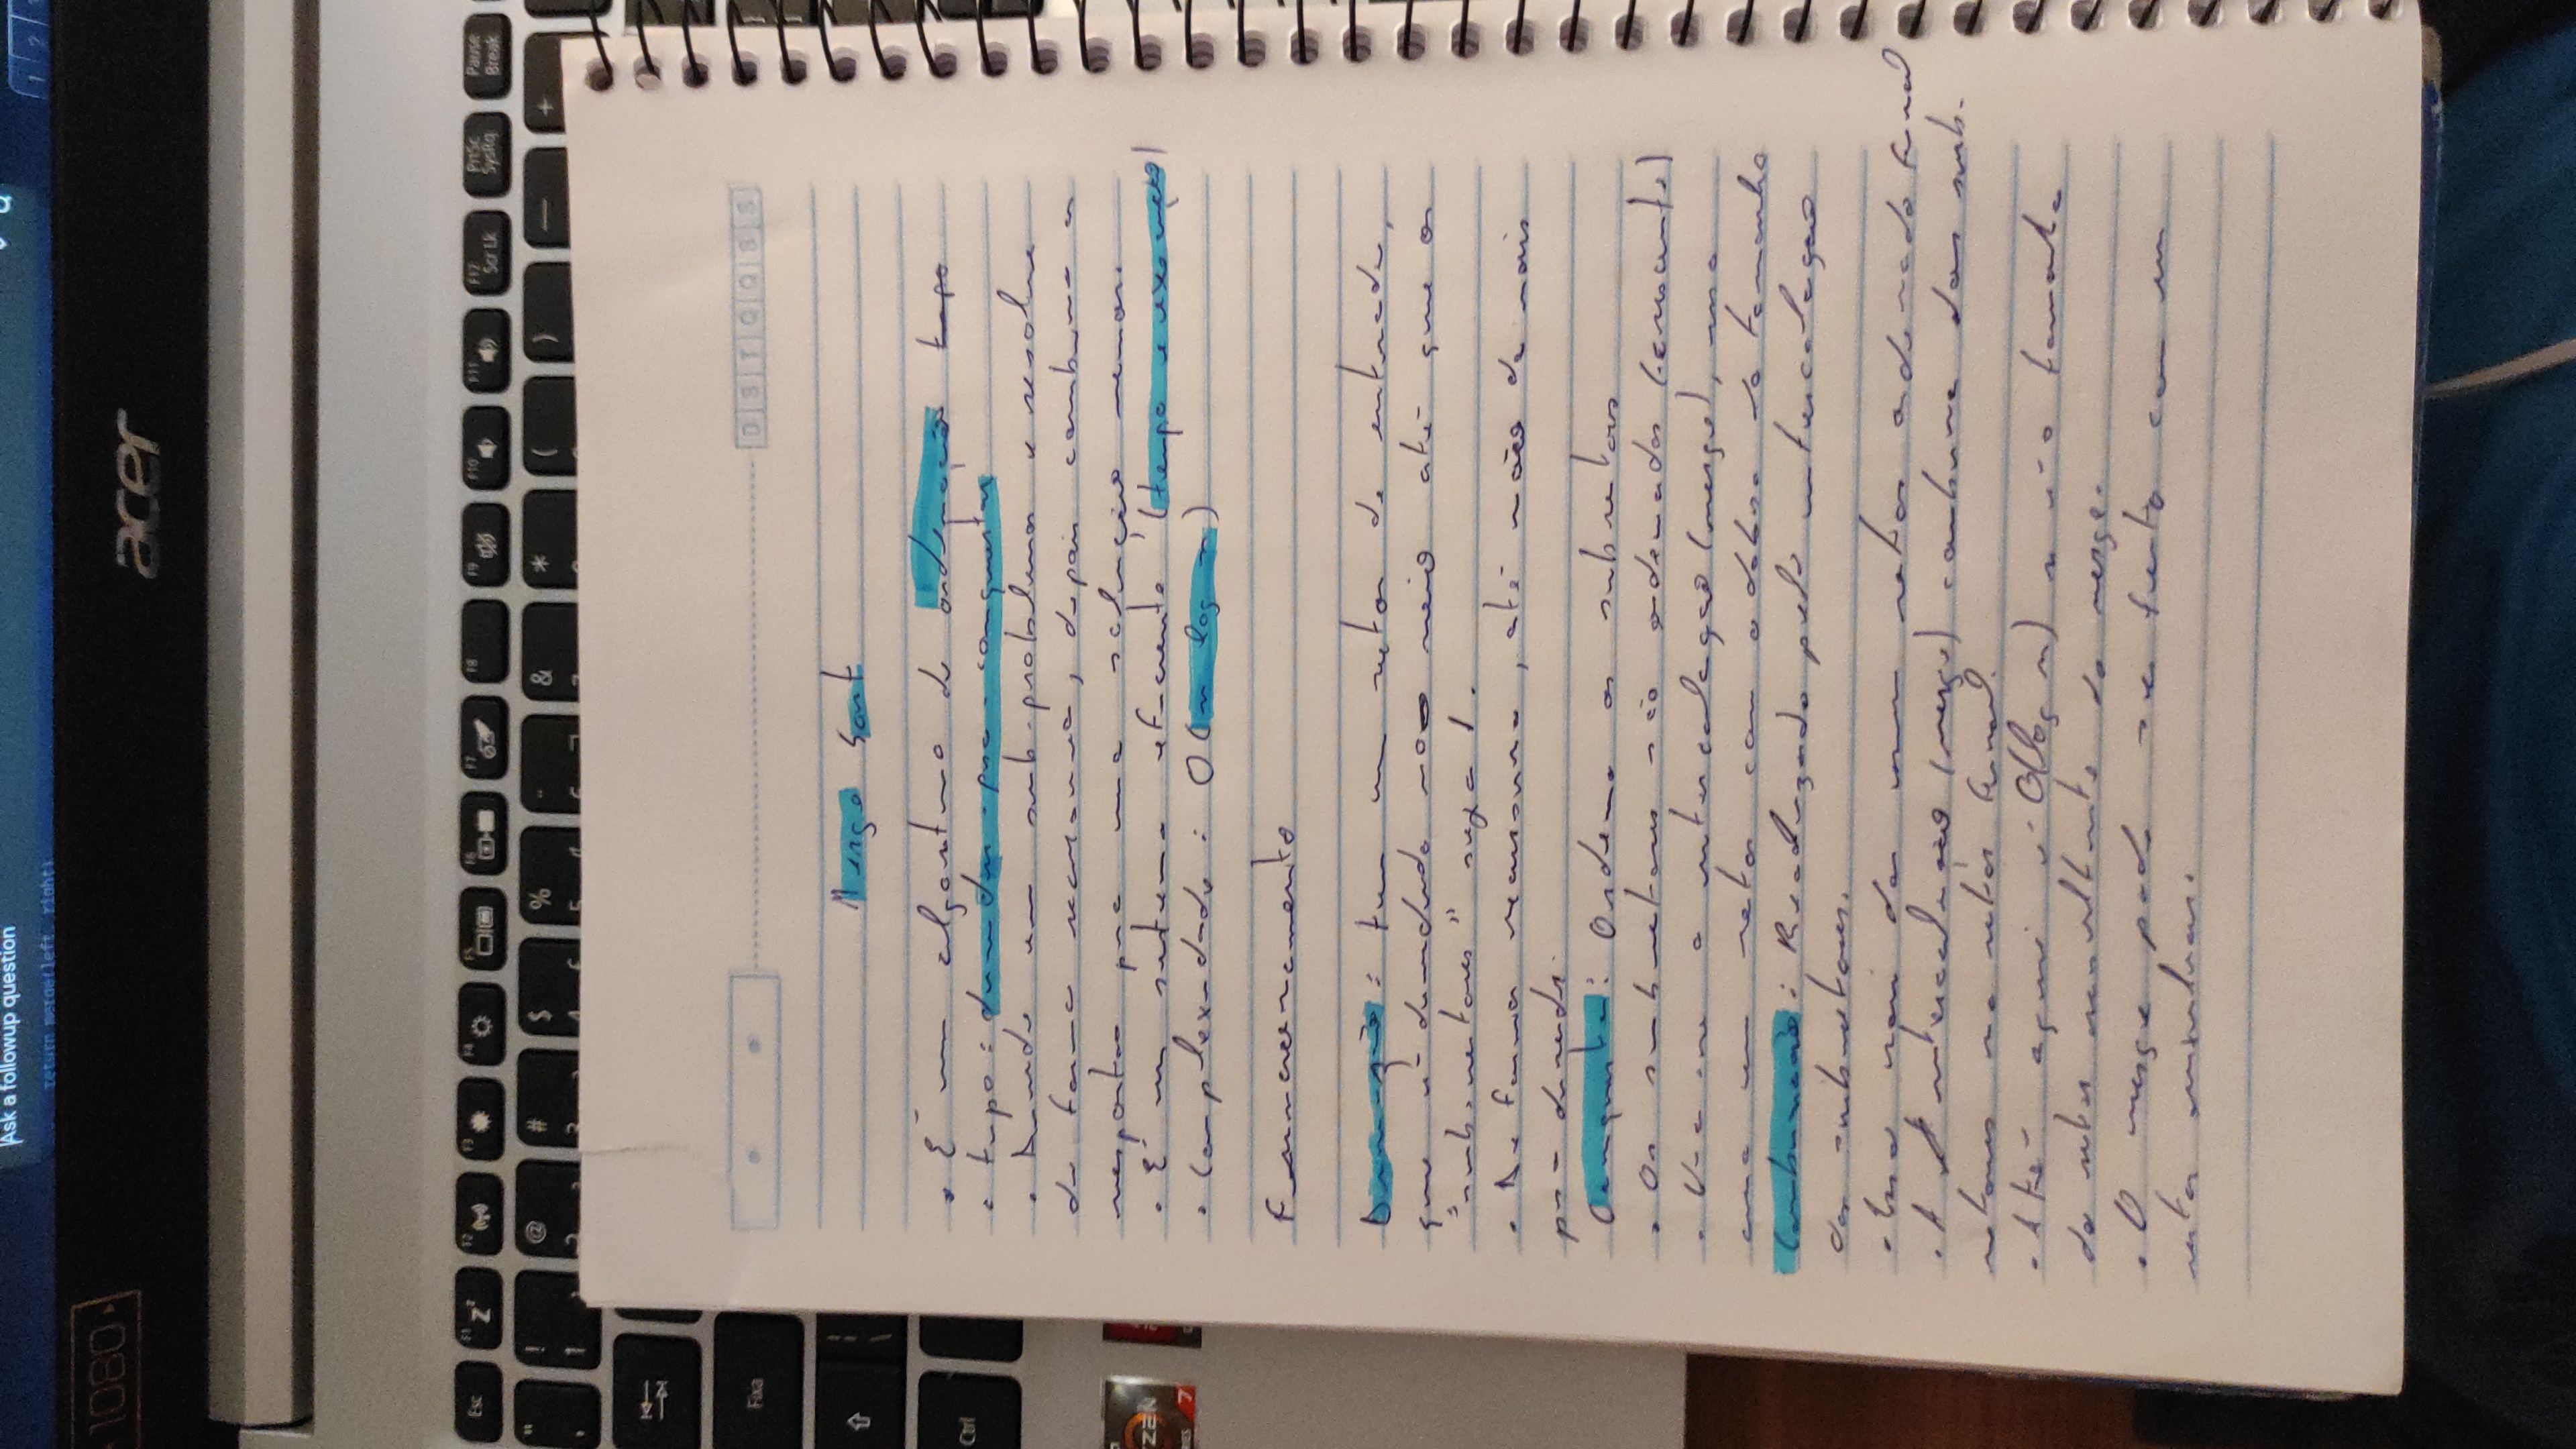 Ask a followup question
return merge(left, right)
1 2
1080
acer
Esc F1 F2 F3 F4 F5 F6 F7 F8 F9 F10 F11 F12 Scr Lk PrtSc SysRq Pause Break
" ! @ # $ % ¨ & * ( ) — +
Fixa
Ctrl
ZEN
7
D S T Q Q S S
Merge Sort
• É um algoritmo de ordenação tipo
• tipo: dividir-pra-conquistar
• Divide em sub-problemas e resolve
de forma recursiva, depois combina as
respostas pra uma solução
• É um sistema eficiente (tempo e execução)
• Complexidade: O(n log n)
Funcionamento
Divisão: tem um vetor de entrada,
que é dividido no meio até que os
"sub-vetores" seja 1.
• De forma recursiva, até não da mais
pra dividir.
Conquista: Ordena os subvetores
• Os subvetores são ordenados (crescente)
• Usa-se a intercalação (merge), isso
cria um vetor com o dobro do tamanho
Combinação: Realizado pela intercalação
dos subvetores.
• Isso vai dar num vetor ordenado final
• A intercalação (merge) combina dois sub-
vetores no vetor final.
• Até aqui é O(log n) n é o tamanho
do vetor resultante do merge.
• O merge pode ser feito com um
vetor auxiliar.